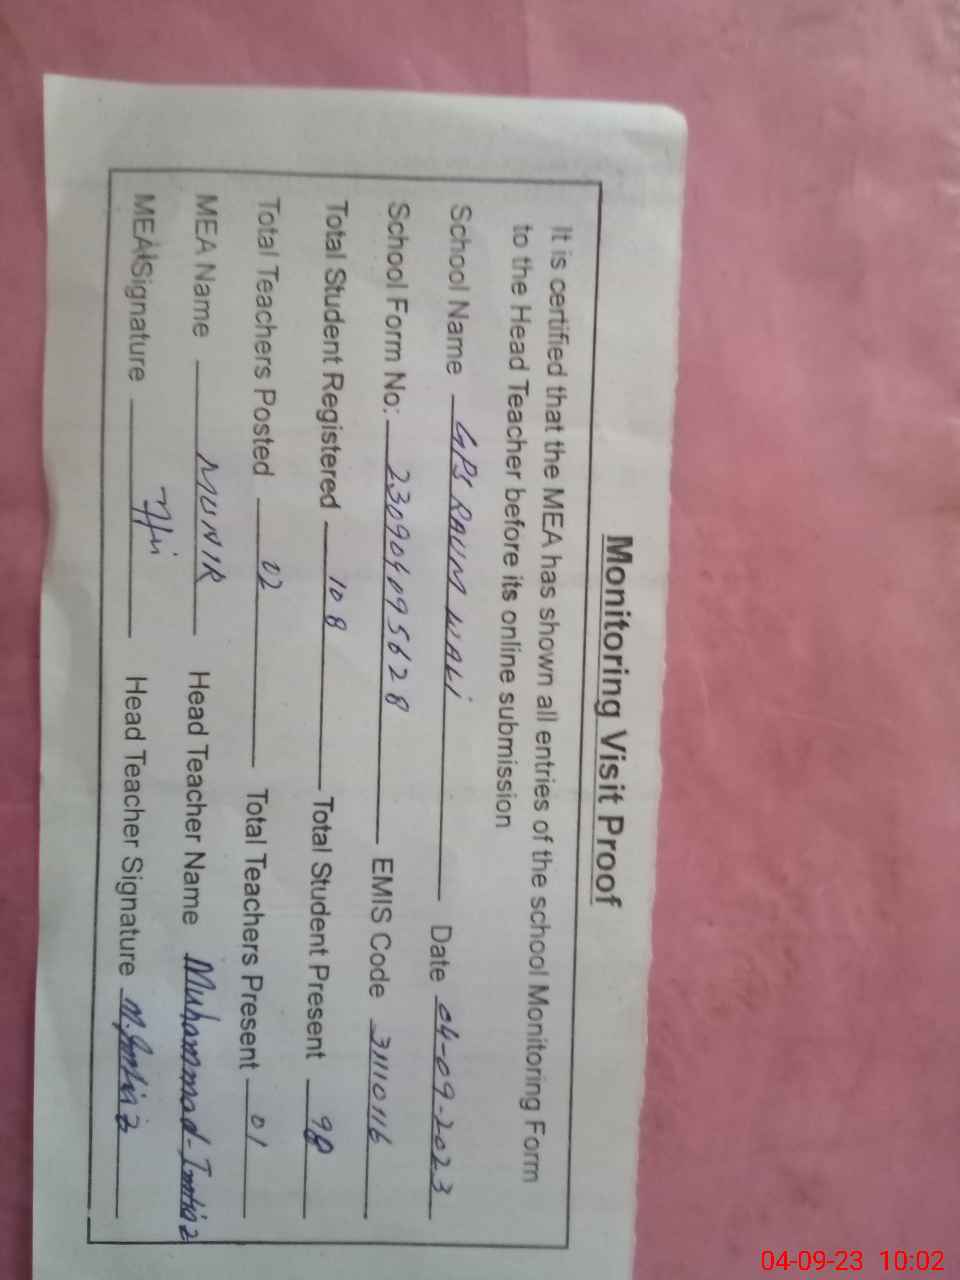 Monitoring Visit Proof
It is certified that the MEA has shown all entries of the school Monitoring Form
to the Head Teacher before its online submission
School Name GPS RAUM WALI Date 04-09-2023
School Form No: 230904095628 EMIS Code 31110116
Total Student Registered 108 Total Student Present 98
Total Teachers Posted 02 Total Teachers Present 01
MEA Name MUNIR Head Teacher Name Muhammad-Imtiaz
MEA Signature Head Teacher Signature M.Imtiaz
04-09-23 10:02